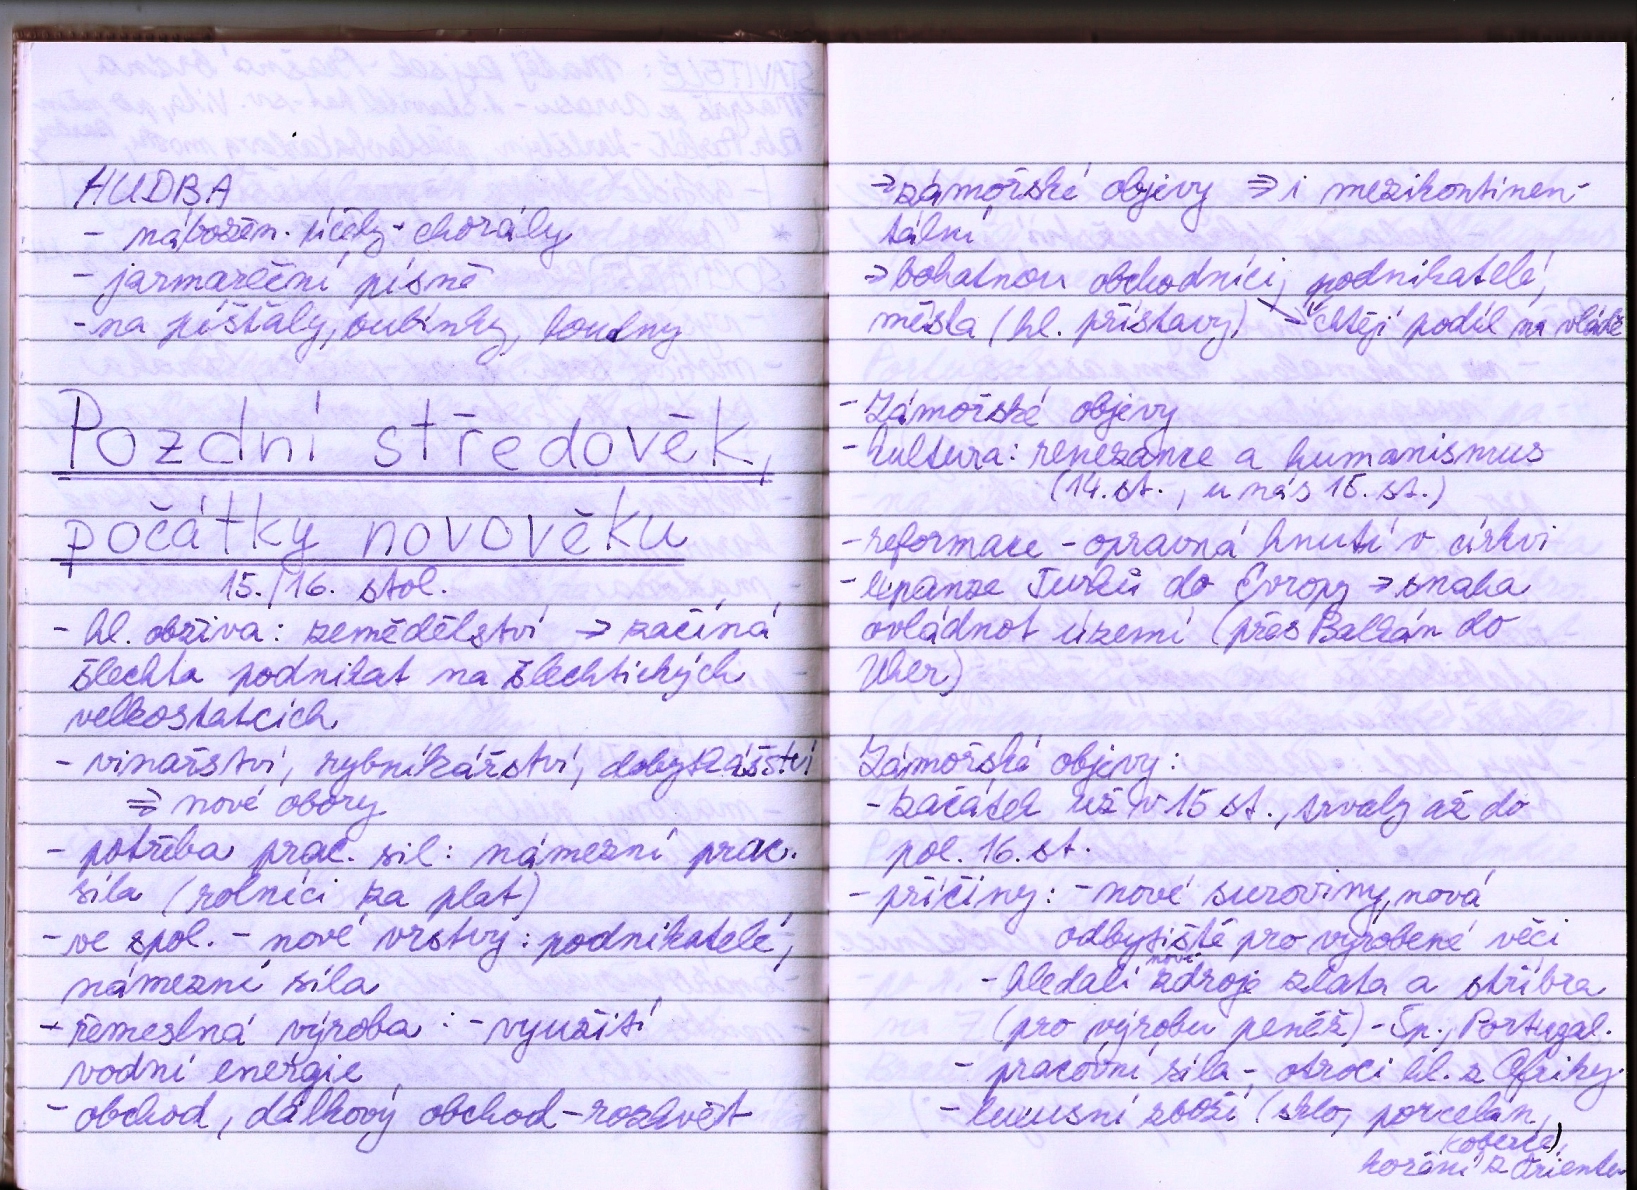 HUDBA
- nábožen. účely - chorály
- jarmareční písně
- na píšťaly, bubínky, loutny
Pozdní středověk,
počátky novověku
15./16. stol.
- hl. obživa: zemědělství → začíná
šlechta podnikat na šlechtických
velkostatcích
- vinařství, rybníkářství, dobytkářství
⇒ nové obory
- potřeba prac. sil: námezní prac.
síla (rolníci za plat)
- ve spol. - nové vrstvy: podnikatelé,
námezní síla
- řemeslná výroba: - využití
vodní energie
- obchod, dálkový obchod - rozkvět
→ zámořské objevy ⇒ i mezikontinen-
tální
→ bohatnou obchodníci, podnikatelé,
města (hl. přístavy) → chtějí podíl na vládě
- Zámořské objevy
- kultura: renezance a humanismus
(14. st., u nás 15. st.)
- reformace - opravná hnutí v církvi
- expanze Turků do Evropy → snaha
ovládnot území (přes Balkán do
Uher)
Zámořské objevy:
- začátek už v 15 st., trvaly až do
pol. 16. st.
- příčiny: - nové suroviny, nová
odbytiště pro vyrobené věci
- hledali nové zdroje zlata a stříbra
(pro výrobu peněz) - Šp., Portugal.
- pracovní síla - otroci hl. z Afriky
- luxusní zboží (sklo, porcelán,
koberce)
koření z Orientu